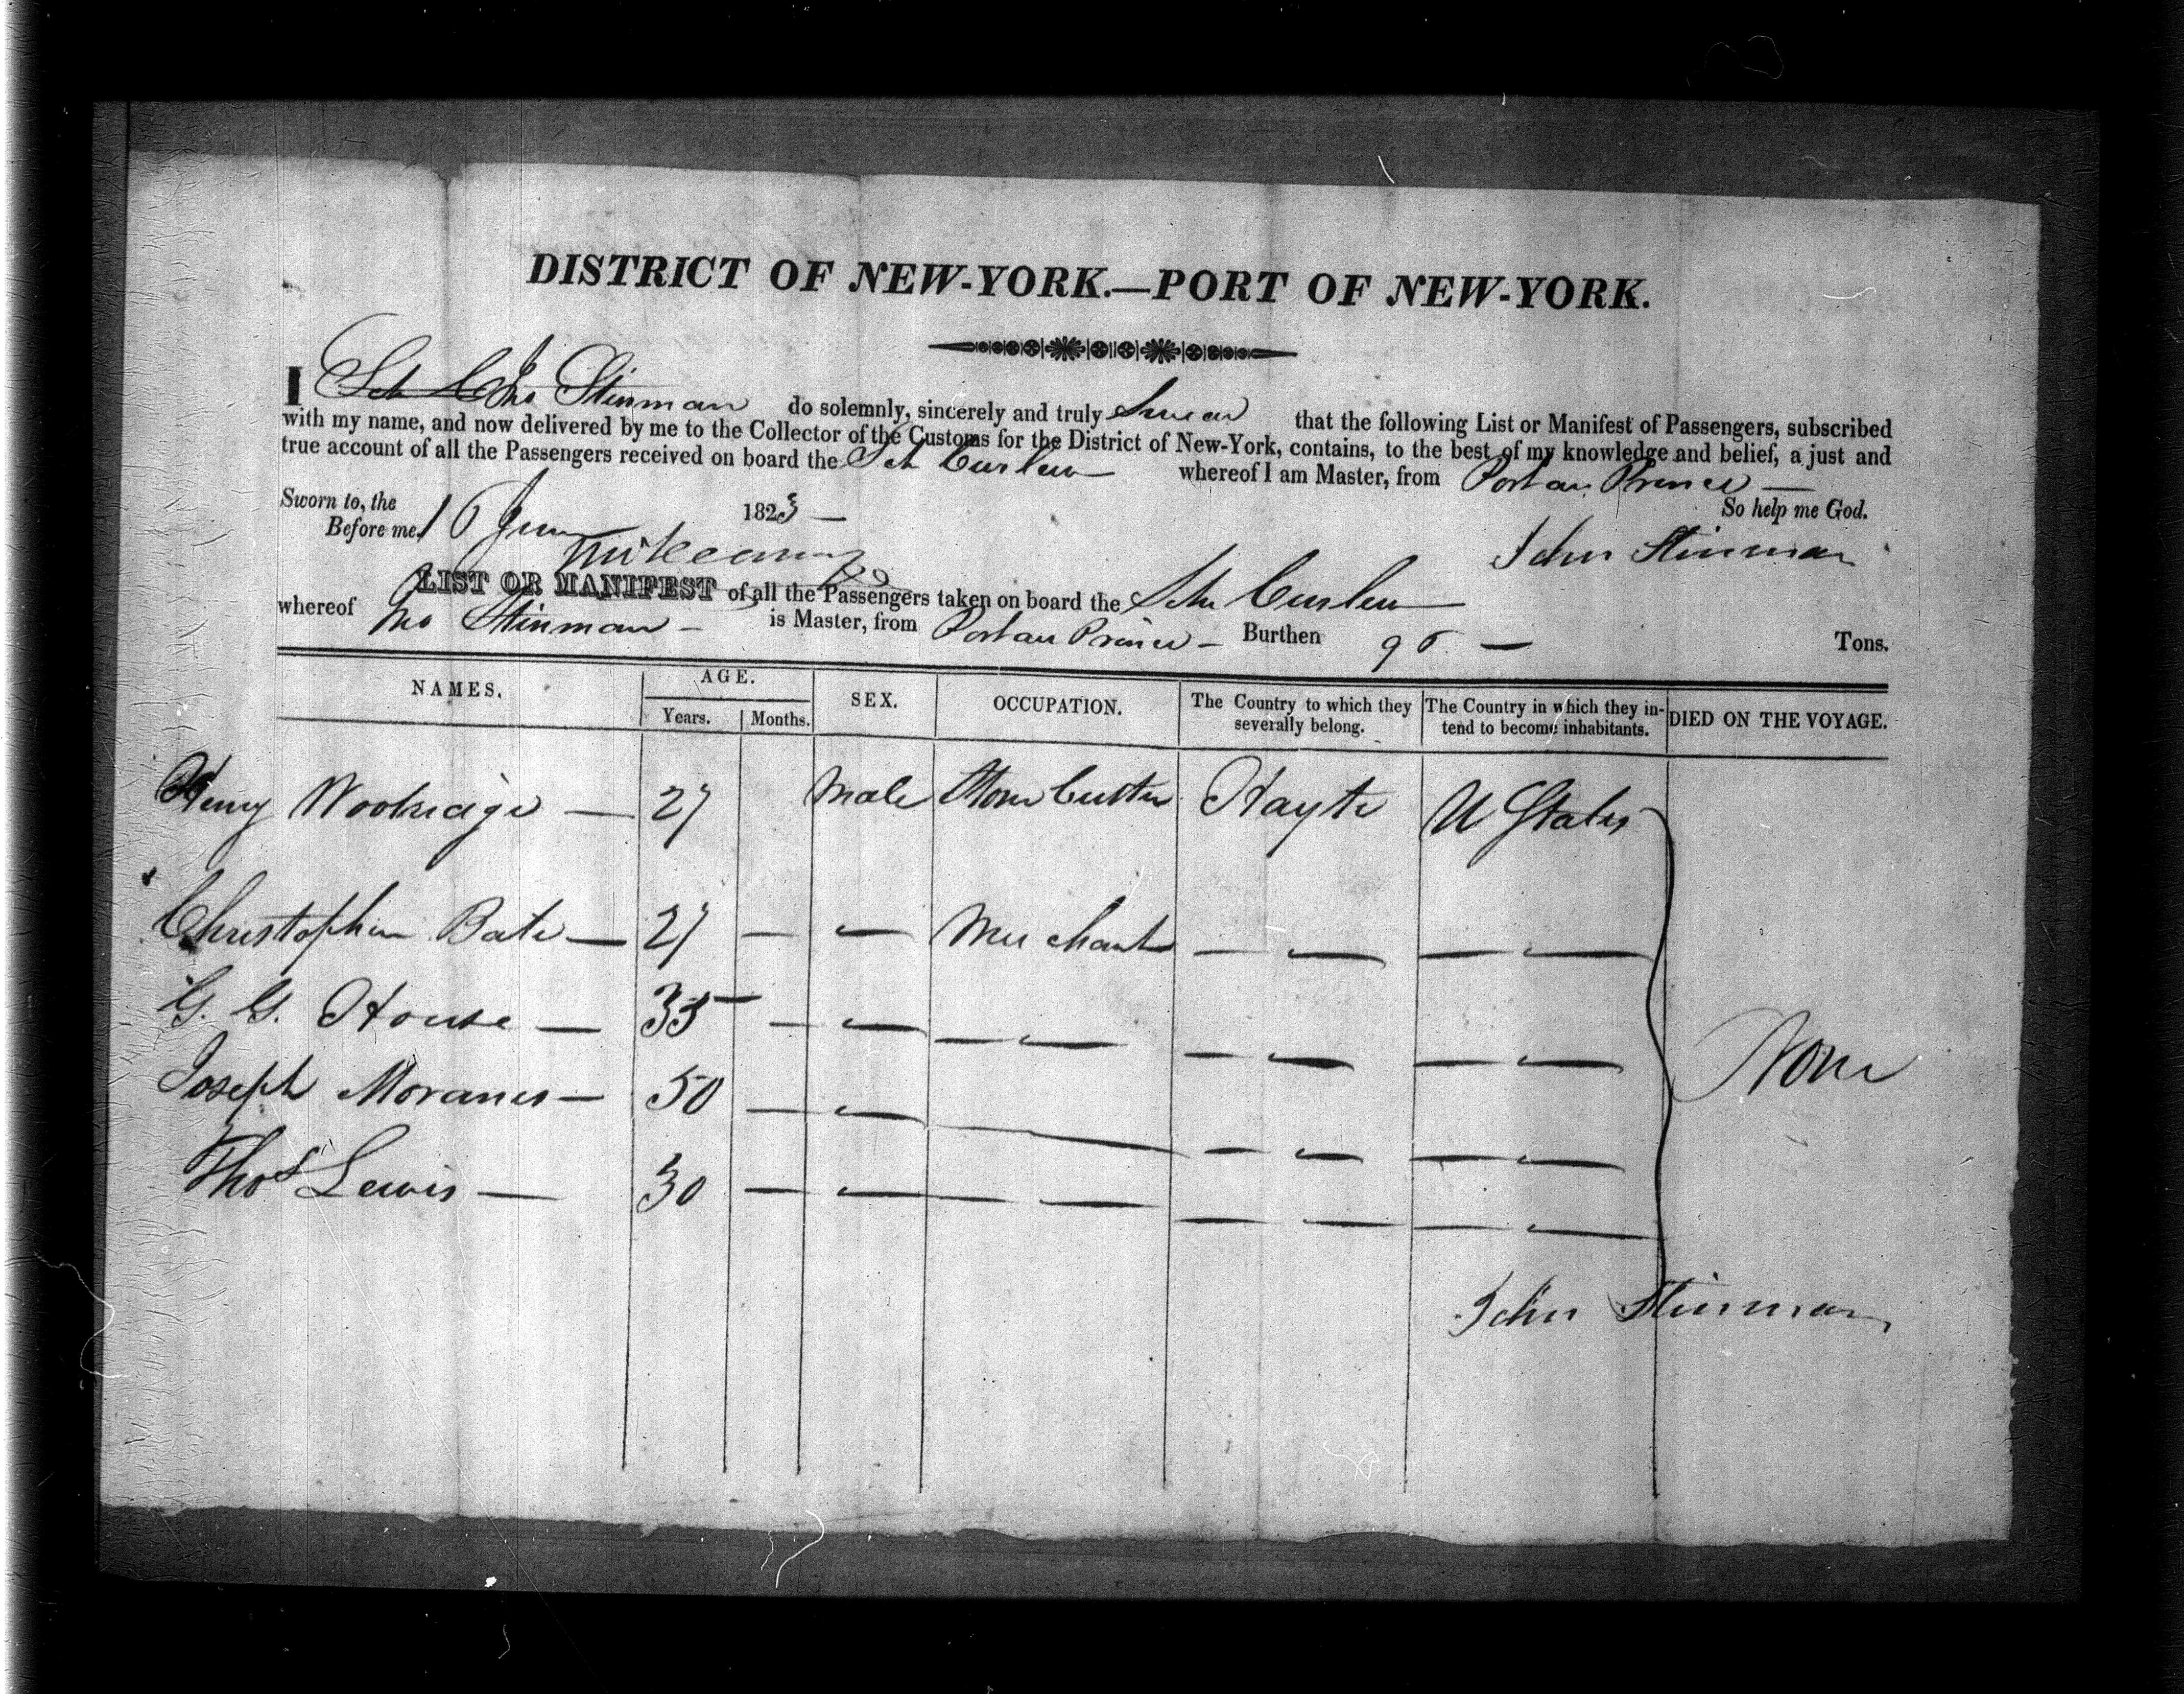 DISTRICT OF NEW-YORK.—PORT OF NEW-YORK.
I Sch C Jno Stinman do solemnly, sincerely and truly Swear that the following List or Manifest of Passengers, subscribed
with my name, and now delivered by me to the Collector of the Customs for the District of New-York, contains, to the best of my knowledge and belief, a just and
true account of all the Passengers received on board the Sch Curlew whereof I am Master, from Port au Prince —
Sworn to, the 16 June 1823 — So help me God.
Before me, John Stinman
LIST OR MANIFEST of all the Passengers taken on board the Schr Curlew
whereof Jno Stinman — is Master, from Port au Prince — Burthen 96 — Tons.
NAMES. AGE. SEX. OCCUPATION. The Country to which they severally belong. The Country in which they intend to become inhabitants. DIED ON THE VOYAGE.
Years. Months.
Henry Woolridge — 27 Male Stone Cutter Hayti U States
Christopher Bate — 27 — — Merchant — — — —
G. G. House — 35 — — — — — — — —
Joseph Moranes — 50 — — — — — — — None
Thos Lewis — 30 — — — — — — — —
John Stinman